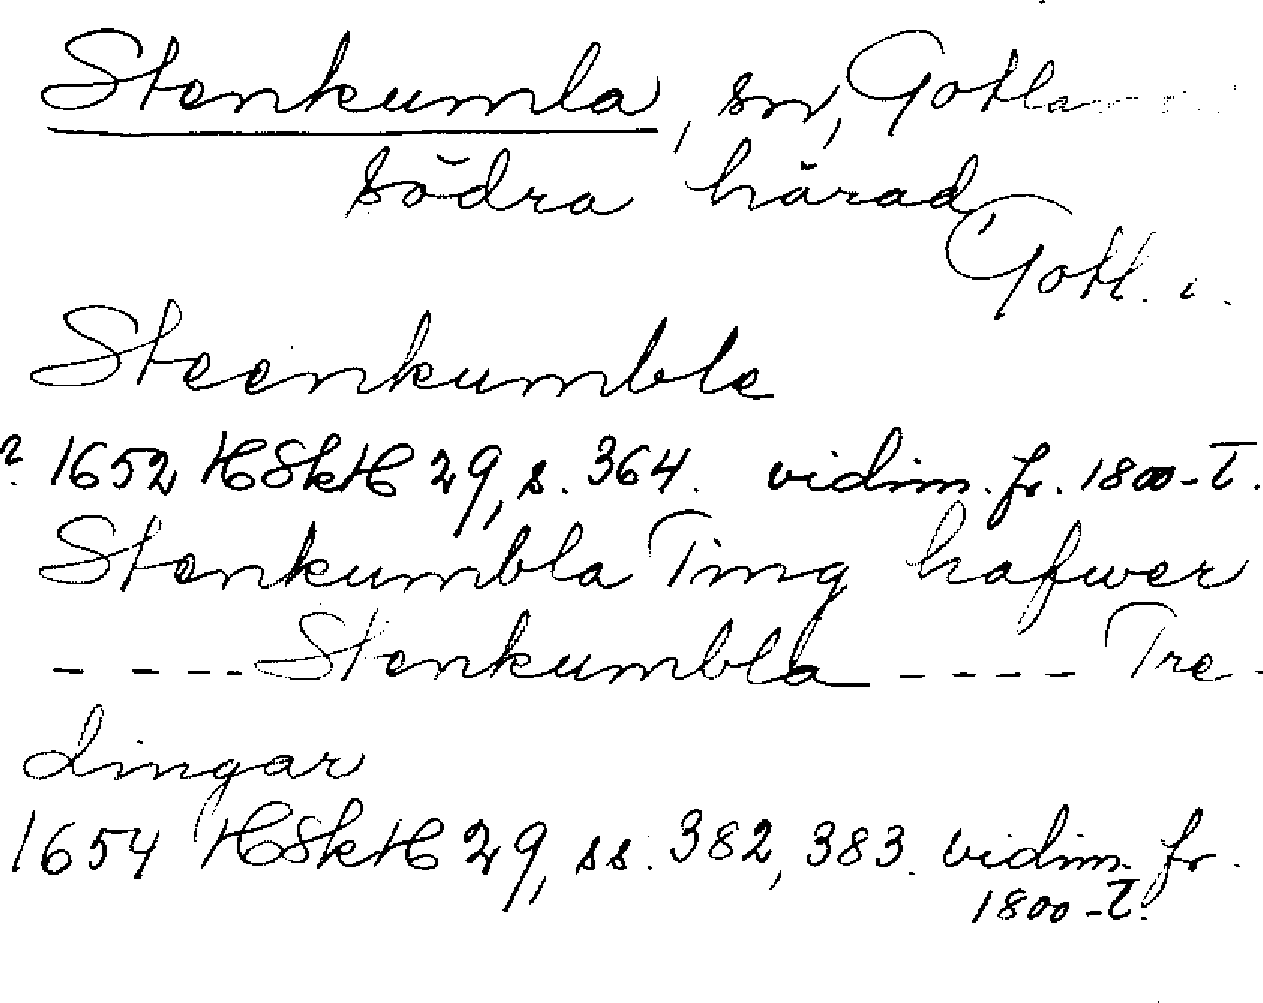 Stenkumla, sn, Gotlands
södra härad
Gotl. l.
Steenkumble
? 1652 HSkH 29, s. 364. vidim. fr. 1800-t.
Stenkumbla Ting hafwer
---- Stenkumbla ---- Tre-
dingar
1654 HSkH 29, ss. 382, 383. vidim. fr.
1800-t.